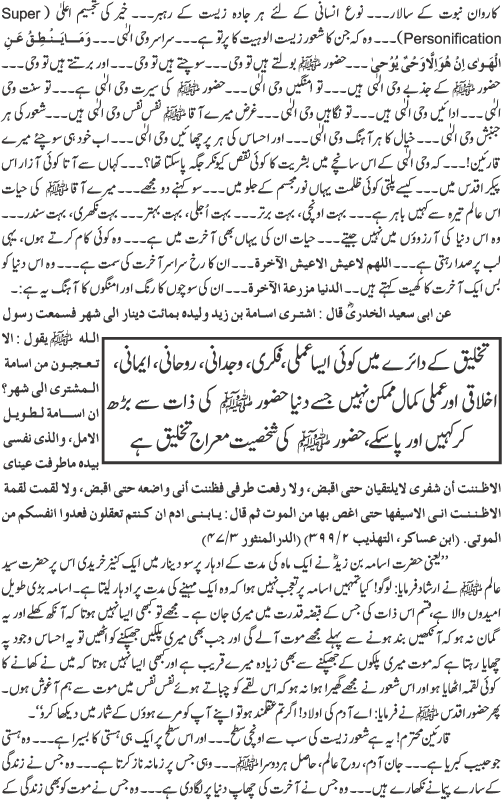 کاروان نبوت کے سالار۔۔۔ نوع انسانی کے لئے ہر جادہ زیست کے رہبر۔۔۔ خیر کی تجسیم اعلیٰ ( Super
Personification)۔۔۔ وہ کہ جن کا شعور زیست الوہیت کا پرتو ہے۔۔۔ سراسر وحی الٰہی ۔۔۔ وَمَا یَنْطِقُ عَنِ
الْهَوٰى اِنْ هُوَ اِلَّا وَحْیٌ یُّوْحٰى۔۔۔ حضور ﷺ بولتے ہیں تو وحی۔۔۔ سوچتے ہیں تو وحی۔۔۔ اور برتتے ہیں تو وحی۔۔۔
حضور ﷺ کے جذبے وحی الٰہی ہیں۔۔۔ تو امنگیں وحی الٰہی۔۔۔ حضور ﷺ کی سیرت وحی الٰہی ہے۔۔۔ تو سنت وحی
الٰہی۔۔۔ ادائیں وحی الٰہی ہیں۔۔۔ تو نگاہیں وحی الٰہی۔۔۔ غرض میرے آقا ﷺ نفس نفس وحی الٰہی ہیں۔۔۔ شعور کی ہر
جنبش وحی الٰہی۔۔۔ خیال کا ہر آہنگ وحی الٰہی۔۔۔ اور احساس کی ہر پرچھائیں وحی الٰہی۔۔۔ اب خود ہی سوچئے میرے
قارئین!۔۔۔ کہ وحی الٰہی کے اس سانچے میں بشریت کا کوئی نقص کیونکر جگہ پاسکتا تھا؟۔۔۔ کہاں سے آتا کوئی آزار اس
پیکر اقدس میں۔۔۔ کیسے پلتی کوئی ظلمت یہاں نور مجسم کے جلو میں۔۔۔ سو کہنے دو مجھے۔۔۔ میرے آقا ﷺ کی حیات
اس عالم تیرہ سے کہیں باہر ہے۔۔۔ بہت اونچی، بہت برتر۔۔۔ بہت اُجلی، بہت بہتر۔۔۔ بہت نکھری، بہت سندر۔۔۔
وہ اس دنیا کی آرزوؤں میں نہیں جیتے۔۔۔ حیات ان کی یہاں بھی آخرت میں ہے۔۔۔ وہ کوئی کام کرتے ہوں، یہی
لب پر صدا رہتی ہے۔۔۔ اللهم لاعیش الا عیش الآخرة۔۔۔ ان کا رخ سراسر آخرت کی سمت ہے۔۔۔ وہ اس دنیا کو
بس ایک آخرت کا کھیت کہتے ہیں۔۔۔ الدنیا مزرعة الآخرة۔۔۔ ان کی سوچوں کا رنگ اور امنگوں کا آہنگ یہ ہے:۔
عن ابی سعید الخدریؓ قال : اشتری اسامة بن زید ولیده بمائت دینار الی شهر فسمعت رسول
الله ﷺ یقول : الا
تعجبون من اسامة
المشتری الی شهر؟
ان اسامة لطویل
الامل، والذی نفسی
بیده ماطرفت عینای
تخلیق کے دائرے میں کوئی ایسا عملی، فکری، وجدانی، روحانی، ایمانی،
اخلاقی اور عملی کمال ممکن نہیں جسے دنیا حضور ﷺ کی ذات سے بڑھ
کر کہیں اور پاسکے، حضور ﷺ کی شخصیت معراج تخلیق ہے
الاظننت أن شفری لایلتقیان حتی اقبض، ولا رفعت طرفی فظننت أنی واضعه حتی اقبض، ولا لقمت لقمة
الاظننت انی الاسیفها حتی اغص بها من الموت ثم قال : یابنی ادم ان کنتم تعقلون فعدوا انفسکم من
الموتی. (ابن عساکر، التهذیب ۳۹۹/۲) (الدر المنثور ۴۷/۳)
”یعنی حضرت اسامہ بن زیدؓ نے ایک ماہ کی مدت کے ادہار پر سو دینار میں ایک کنیز خریدی اس پر حضرت سید
عالم ﷺ نے ارشاد فرمایا: لوگو! کیا تمہیں اسامہ پر تعجب نہیں ہوا کہ وہ ایک مہینے کی مدت پر ادہار لیتا ہے۔ اسامہ بڑی طویل
امیدوں والا ہے، قسم اس ذات کی جس کے قبضہ قدرت میں میری جان ہے۔ مجھے تو کبھی ایسا نہیں ہوتا کہ آنکھ کھلے اور یہ
گمان نہ ہو کہ آنکھیں بند ہونے سے پہلے مجھے موت آلے گی اور جب بھی میری پلکیں جھپکنے کو اٹھیں تو یہ احساس وجود پہ
چھایا رہتا ہے کہ موت میری پلکوں کے جھپکنے سے بھی زیادہ میرے قریب ہے اور کبھی ایسا نہیں ہوتا کہ میں نے کھانے کا
کوئی لقمہ اٹھایا ہو اور اس شعور نے مجھے گھیرا ہوا نہ ہو کہ اس لقمے کو چباتے ہوئے نفس نفس میں موت سے ہم آغوش ہوں۔
پھر حضور اقدس ﷺ نے فرمایا: اے آدم کی اولاد! اگر تم عقلمند ہو تو اپنے آپ کو مرے ہوؤں کے شمار میں دیکھا کرو“۔
قارئین محترم! یہ ہے شعور زیست کی سب سے اونچی سطح۔۔۔ اور اس سطح پر ایک ہی ہستی کا بسیرا ہے۔۔۔ وہ ہستی
جو حبیب کبریا ہے۔۔۔ جان آدم، روح عالم، حاصل ہر دو سرا ﷺ۔۔۔ وہی جس پر زمانہ ناز کرتا ہے۔۔۔ وہ جس نے زندگی
کے سارے پیمانے نکھارے ہیں۔۔۔ وہ جس نے آخرت کی چھاپ دنیا پر لگا دی ہے۔۔۔ وہ جس نے موت کو بھی زندگی کے